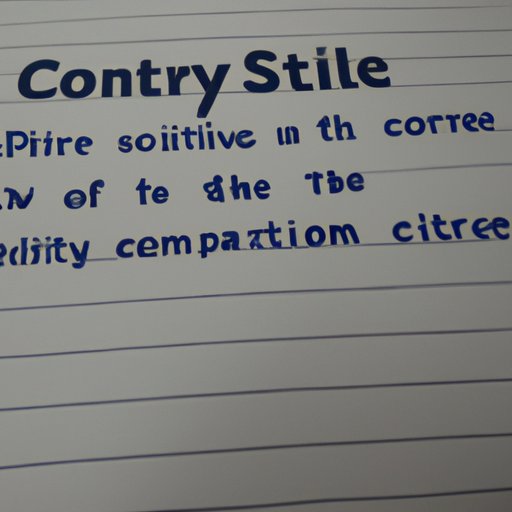 Contry Stile
Pitre soiitlive in th corree
of te the Tbe
cempaztiom citree